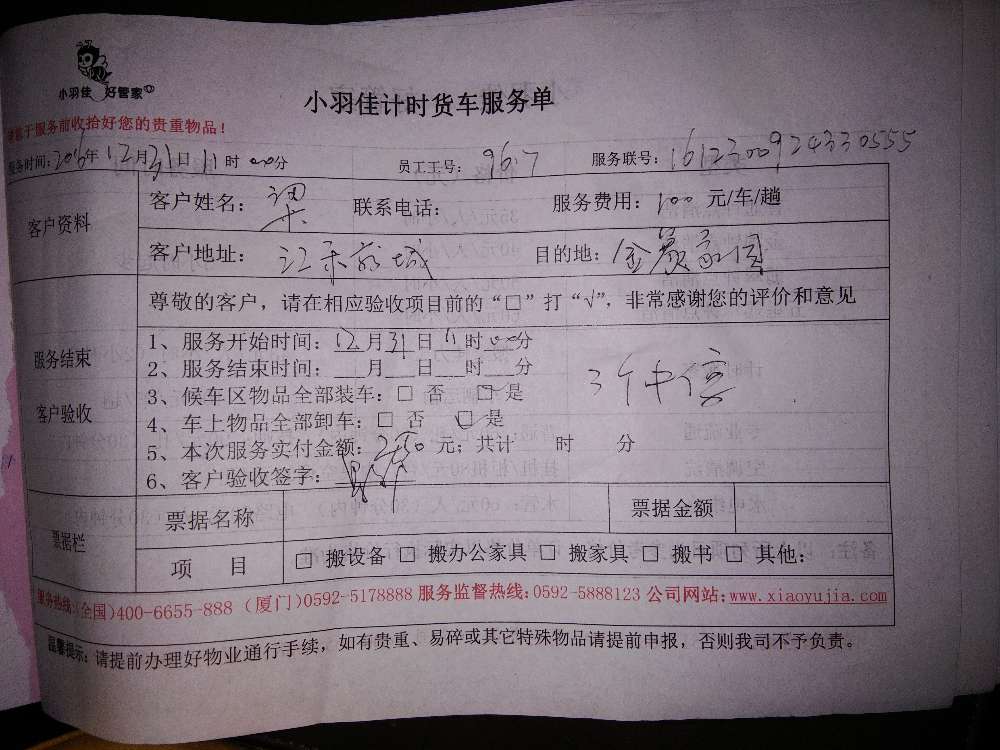 小羽佳 好管家
小羽佳计时货车服务单
请您于服务前收拾好您的贵重物品!
服务时间:2016年12月31日11时00分 员工工号: 967 服务联号: 161230092433 0555
客户资料
客户姓名: 梁 联系电话: 服务费用: 100 元/车/趟
客户地址: 目的地: 金 家园
尊敬的客户,请在相应验收项目前的“□”打“√”,非常感谢您的评价和意见
服务结束
客户验收
1、服务开始时间:12月31日11时00分
2、服务结束时间:___月___日___时___分
3、候车区物品全部装车:□ 否 □ 是
4、车上物品全部卸车:□ 否 □ 是
5、本次服务实付金额: 250 元;共计 时 分
6、客户验收签字:
票据栏
票据名称 票据金额
项 目 □ 搬设备 □ 搬办公家具 □ 搬家具 □ 搬书 □ 其他:
服务热线:(全国)400-6655-888 (厦门)0592-5178888 服务监督热线:0592-5888123 公司网站:www.xiaoyujia.com
温馨提示:请提前办理好物业通行手续,如有贵重、易碎或其它特殊物品请提前申报,否则我司不予负责。